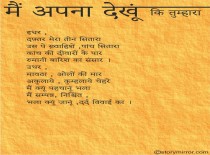 मैं अपना देखूं कि तुम्हारा
इधर ,
दफ़्तर मेरा तीन सितारा
उस पे ख्वाहिशें ,पांच सितारा
कांच की दीवारों के पार
रुमानी बारिश का संसार ।
उधर ,
मावठा , ओलों की मार
अकुलाये , कुम्हलाये चेहरे
मैं क्यूं पहचानूं भला
मैं सम्पन्न, निश्चिंत ,
भला क्यूं जानूं ,दर्द विवाई का ।
©storymirror.com